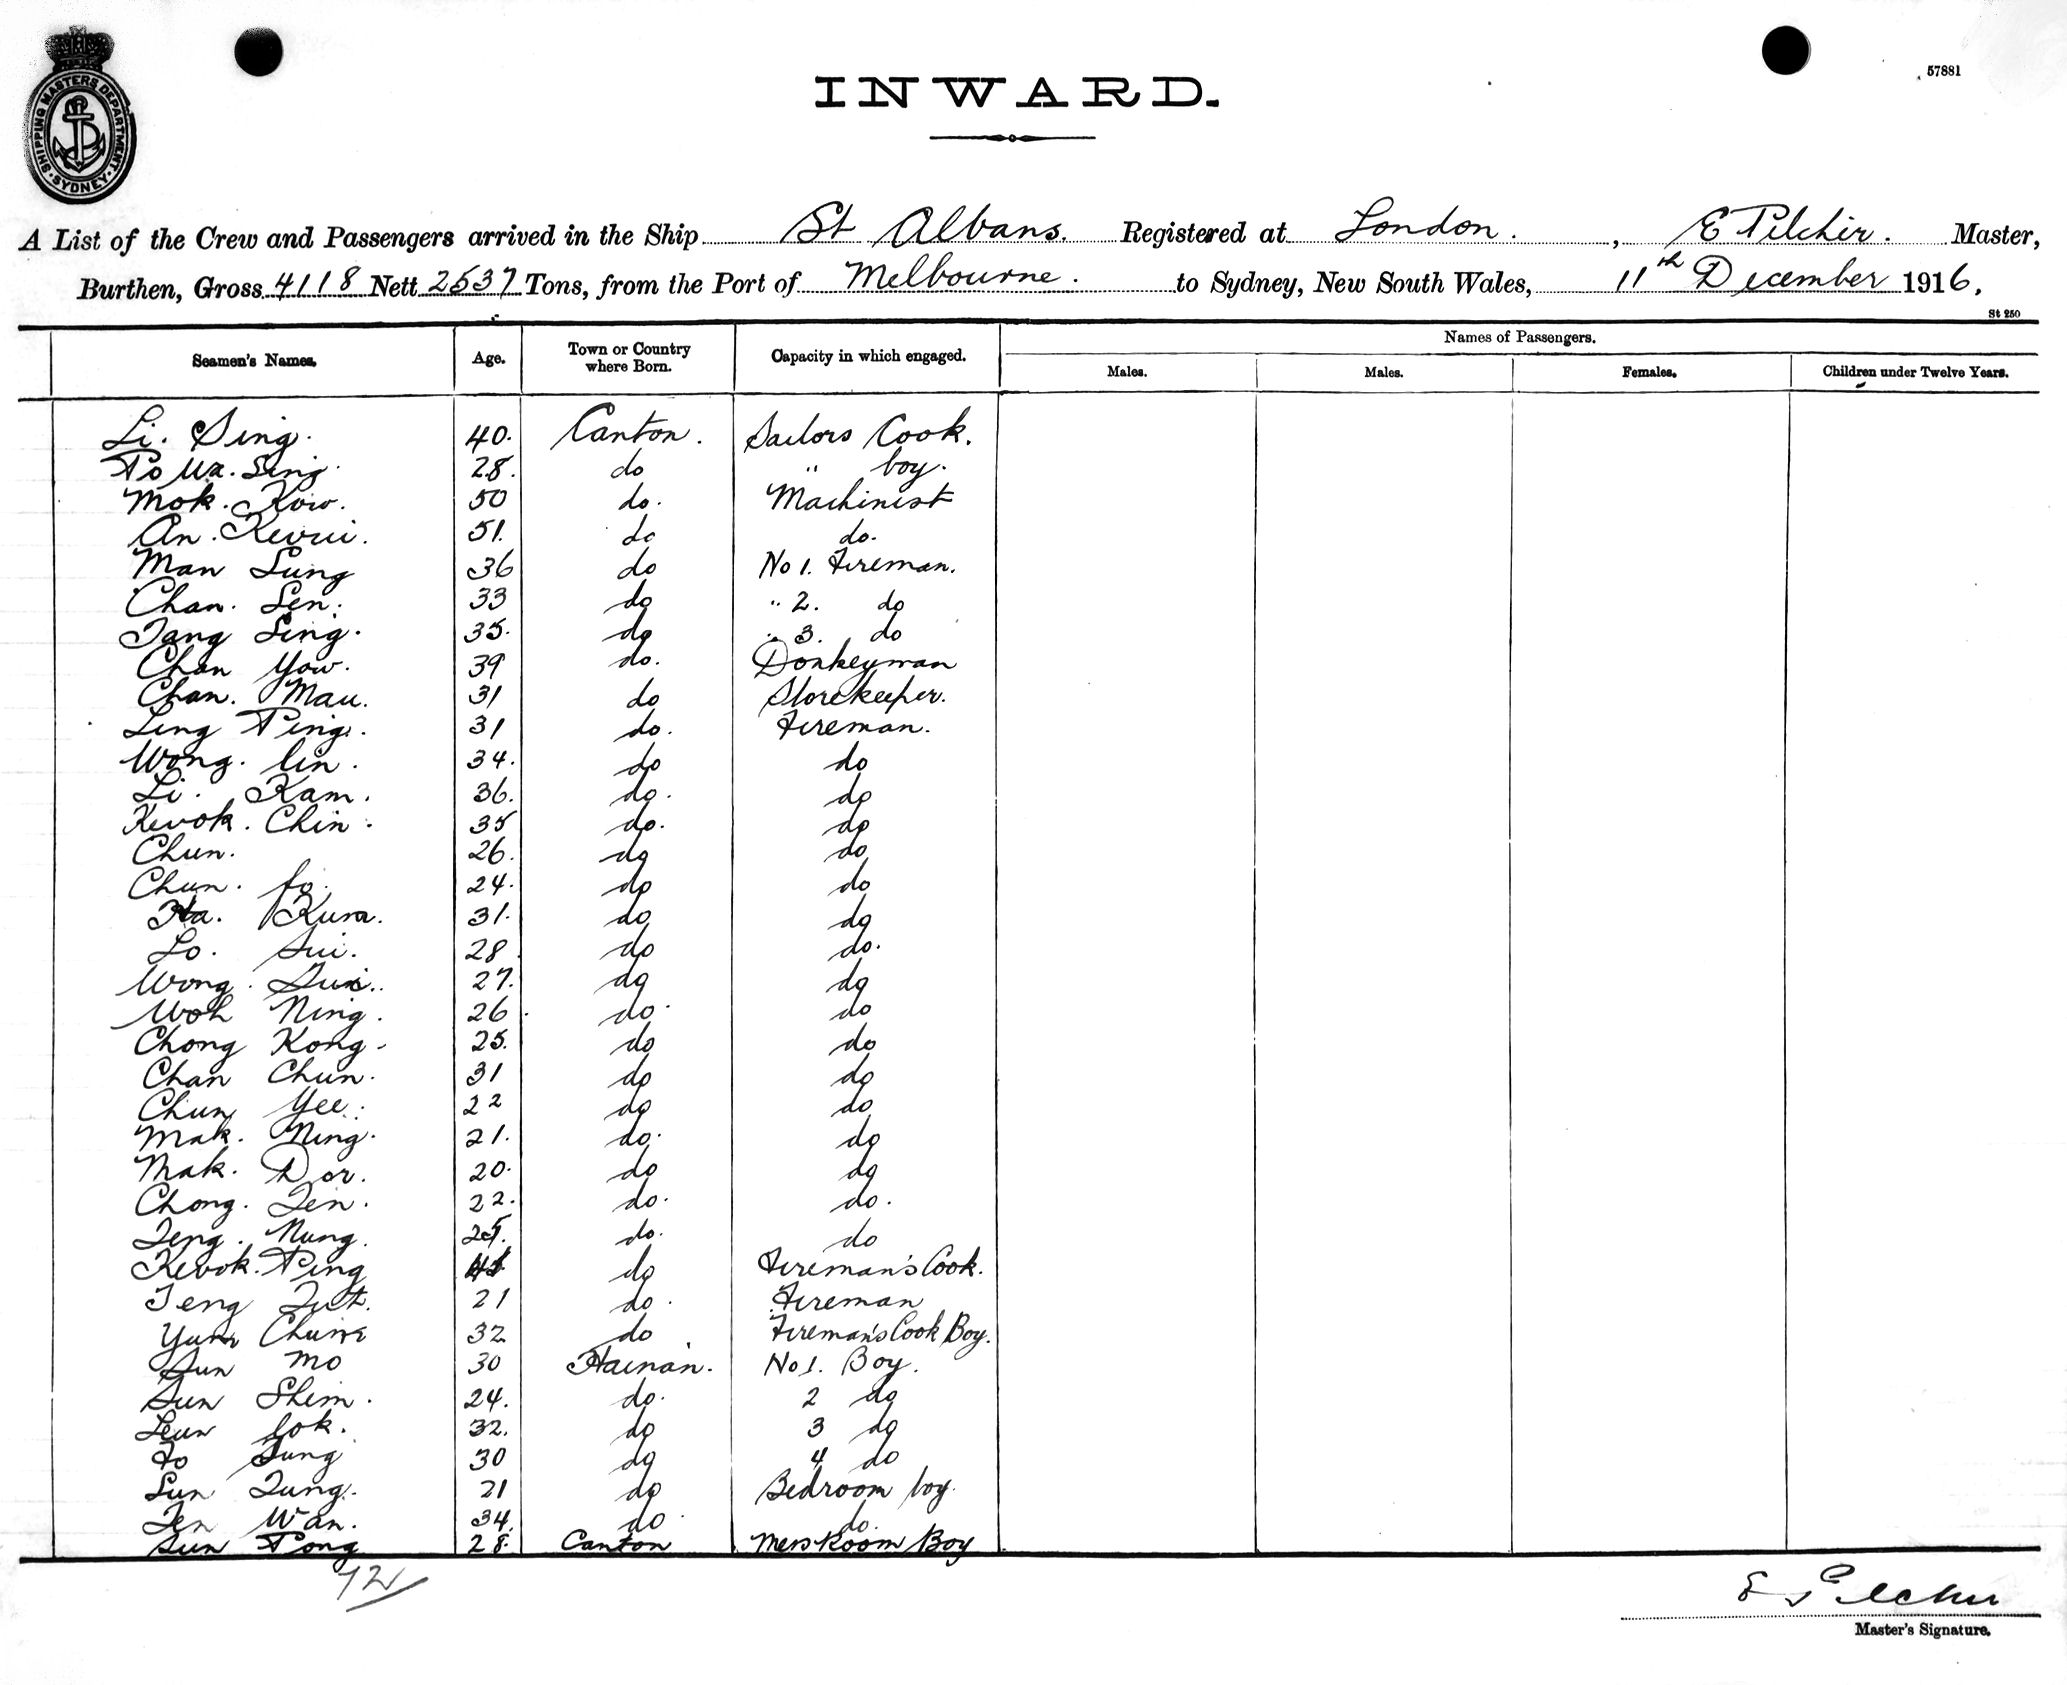 SHIPPING MASTERS DEPARTMENT SYDNEY
57881
INWARD.
A List of the Crew and Passengers arrived in the Ship St Albans. Registered at London. , E Pilcher. Master,
Burthen, Gross 4118 Nett 2537 Tons, from the Port of Melbourne. to Sydney, New South Wales, 11th December 1916.
St 250
Seamen's Names. Age. Town or Country where Born. Capacity in which engaged. Names of Passengers.
Males. Males. Females. Children under Twelve Years.
Li. Sing. 40. Canton. Sailors Cook.
Sing. 28. do " boy.
Mok. Kow. 50 do. Machinist
An. 51. do do.
Man Sung 36 do No 1. Fireman.
Chan. Sen. 33 do " 2. do
Tang Sing. 35. do " 3. do
Chan Yow. 39 do. Donkeyman
Chan. Mau. 31 do Storekeeper.
Ling Ping. 31 do. Fireman.
Wong. lin. 34. do do
Li. Kam. 36. do. do
Kwok. Chin. 35 do. do
Chun. 26. do do
Chun. fo. 24. do do
Ha. Kum. 31. do do
Lo. Sui. 28 do do.
Wong. Sui. 27. do do
Woh Ning. 26 do. do
Chong Kong. 25. do do
Chan Chun. 31 do do
Chun Yee. 22 do do
Mak. Ning. 21. do. do
Mak. Dor. 20. do do
Chong. Ten. 22. do. do.
Teng. Nung. 25. do. do
Kwok. Ping do Fireman's Cook.
Teng 21 do. Fireman
Yum 32 do Fireman's Cook Boy.
Sun Mo 30 Hainan. No 1. Boy.
Sun Shim. 24. do. 2 do
Leun fok. 32. do 3 do
Fo Sung 30 do 4 do
Sun Tung. 21 do Bedroom boy.
Ten Wan. 34. do. do.
Sun Tong 28. Canton Mess Room Boy
72
E Pilcher
Master's Signature.